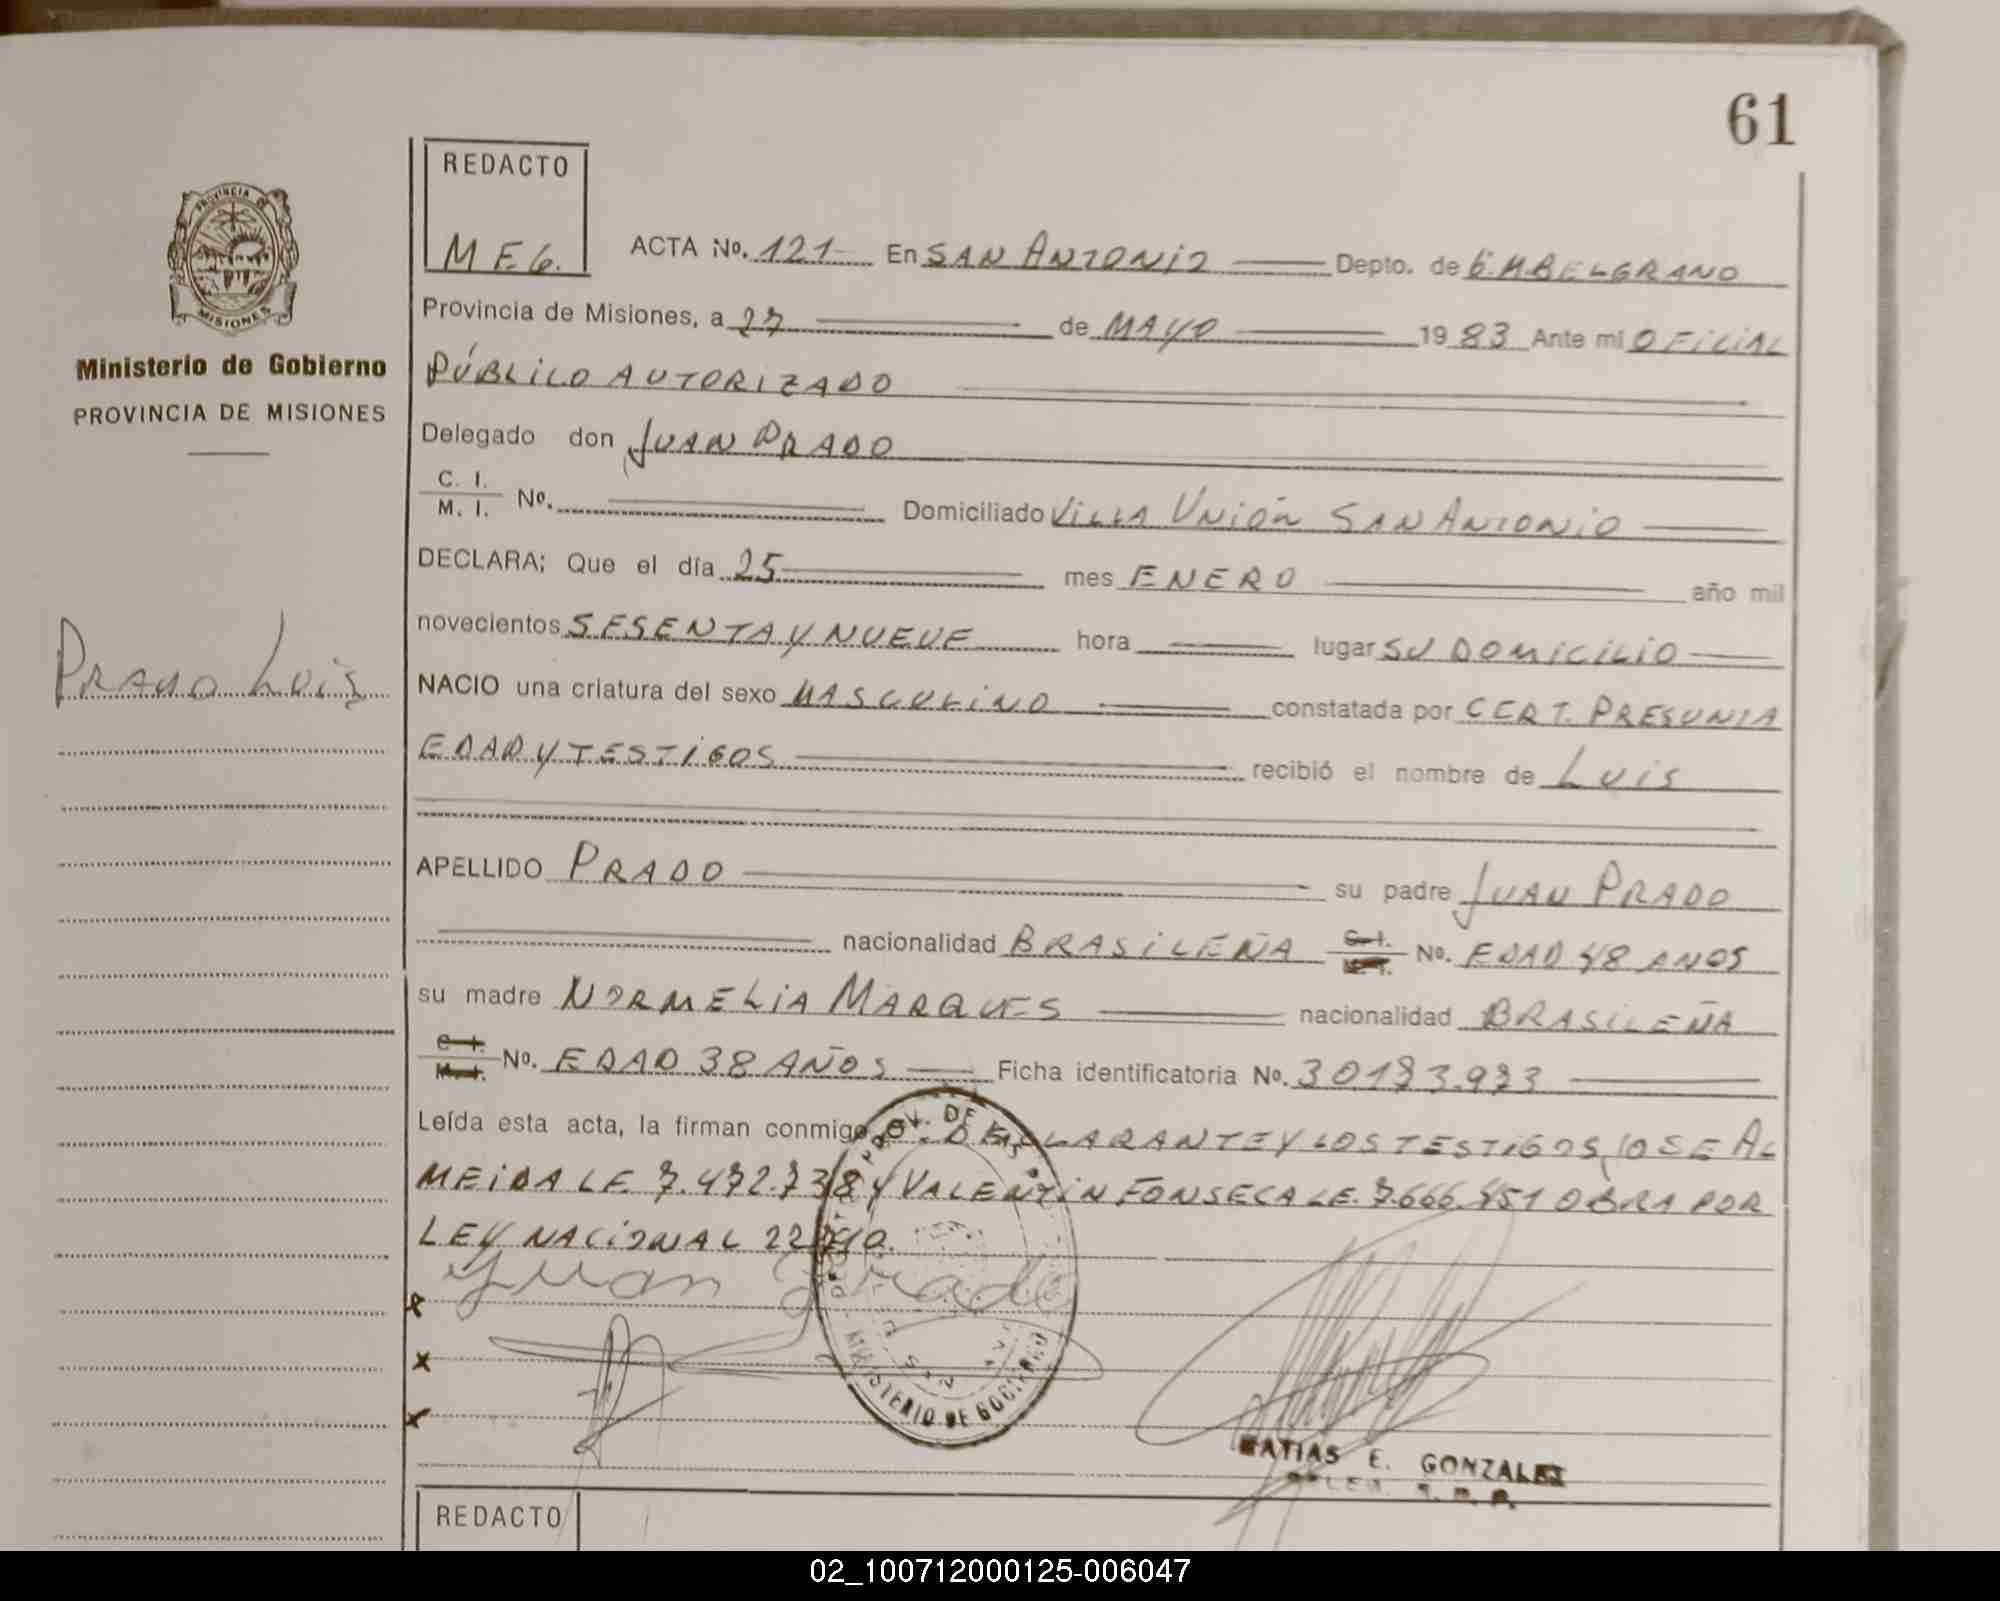 61
REDACTO
M E G.
PROVINCIA DE
MISIONES
Ministerio de Gobierno
PROVINCIA DE MISIONES
ACTA Nº. 121 En SAN ANTONIO Depto. de G. M BELGRANO
Provincia de Misiones, a 27 de MAYO 1983 Ante mi OFICIAL
PÚBLICO AUTORIZADO
Delegado don JUAN PRADO
C. I.
M. I. Nº. Domiciliado VILLA UNIÓN SAN ANTONIO
DECLARA; Que el día 25 mes ENERO año mil
novecientos SESENTA Y NUEVE hora lugar SU DOMICILIO
PRADO LUIS
NACIO una criatura del sexo MASCULINO constatada por CERT. PRESUNTA
EDAD Y TESTIGOS recibió el nombre de LUIS
APELLIDO PRADO su padre JUAN PRADO
nacionalidad BRASILEÑA C. I. M. I. Nº. EDAD 48 AÑOS
su madre NORMELIA MARQUES nacionalidad BRASILEÑA
C. I. M. I. Nº. EDAD 38 AÑOS Ficha identificatoria Nº. 30173.973
Leída esta acta, la firman conmigo EL DECLARANTE Y LOS TESTIGOS JOSE AL
MEIDA LE 7.472.738 Y VALENTIN FONSECA LE. 7.666.451 OBRA POR
LEY NACIONAL
Juan Prado
PROV. DE
MINISTERIO DE GOBIERNO
MATIAS E. GONZALEZ
REDACTO
02_100712000125-006047